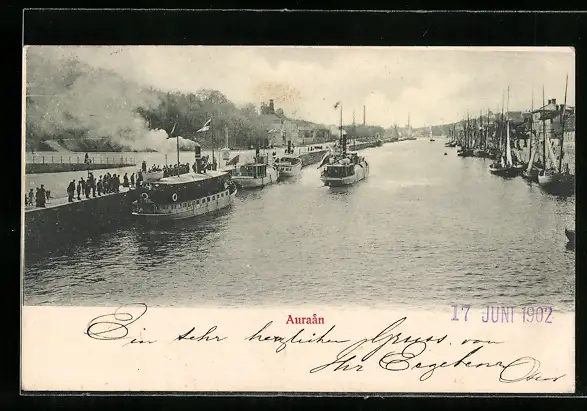 Auraån
17 JUNI 1902
Ein sehr herzlichen Gruss von
Ihr Ergebene